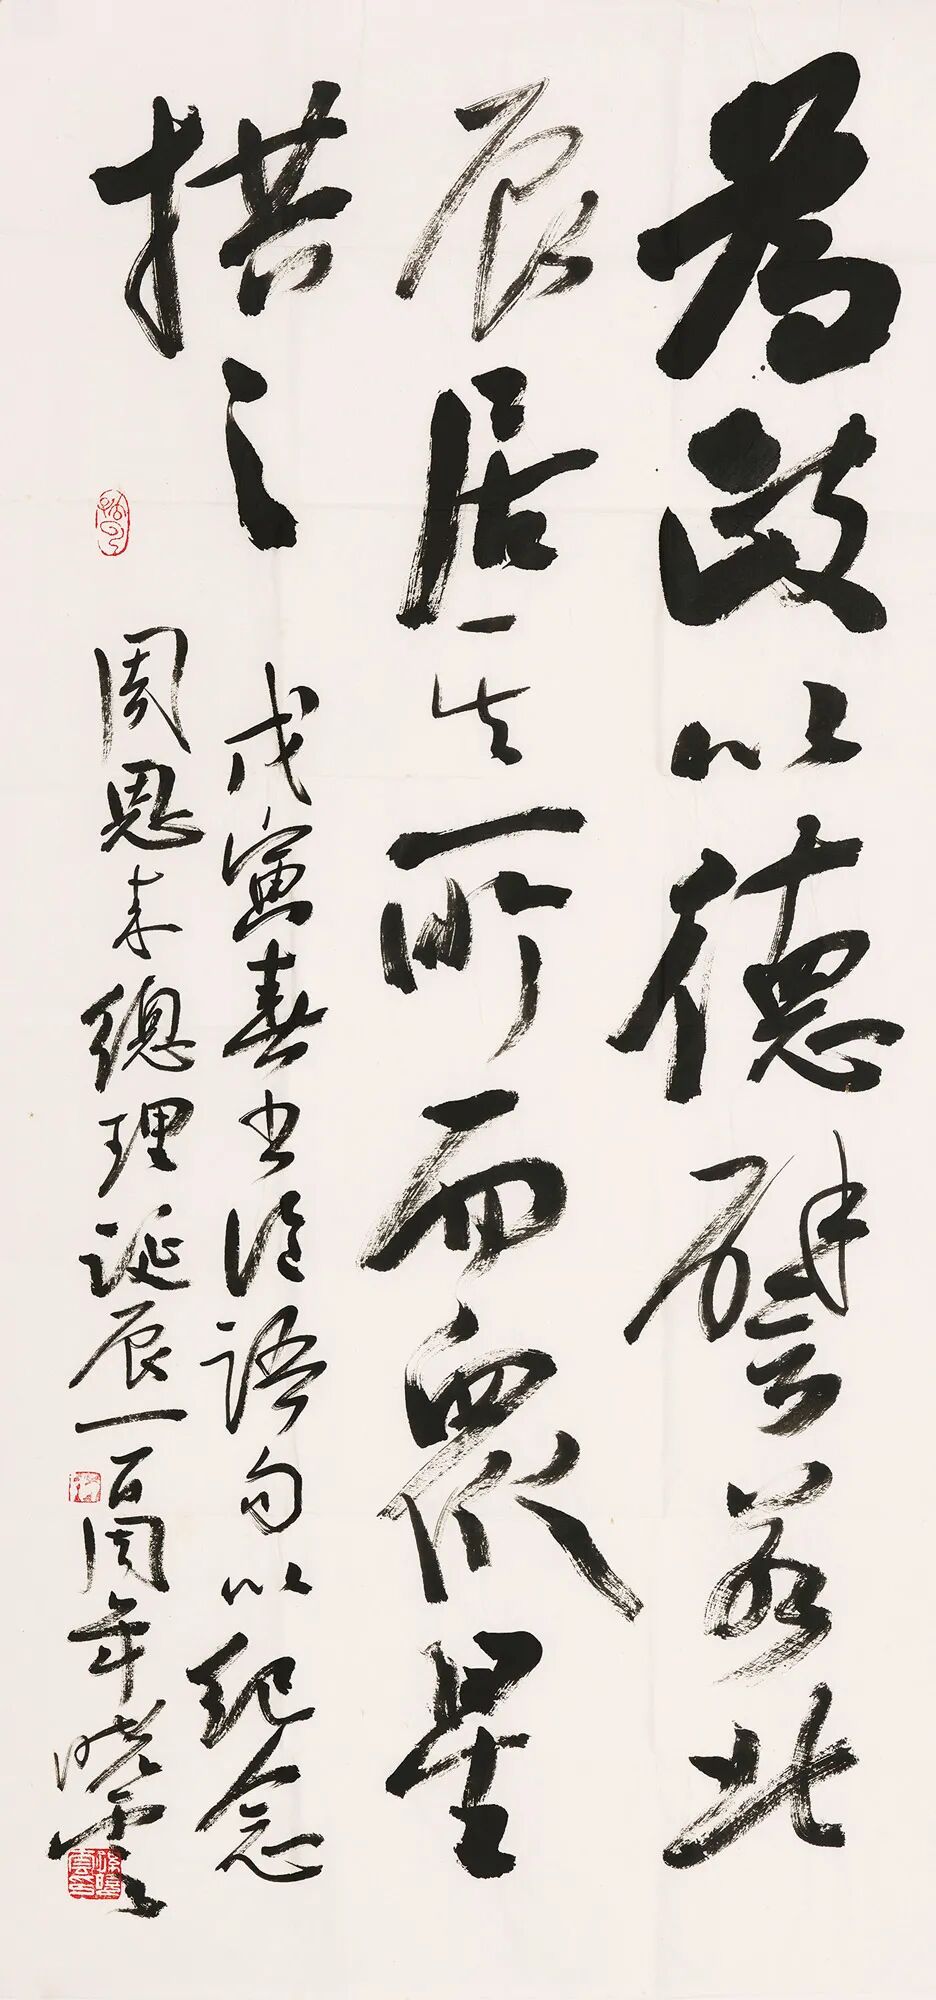 為政以德譬若北
辰居其所而眾星
拱之
戊寅春書論語句以紀念
周恩来總理誕辰一百周年曉雲
孫曉雲印